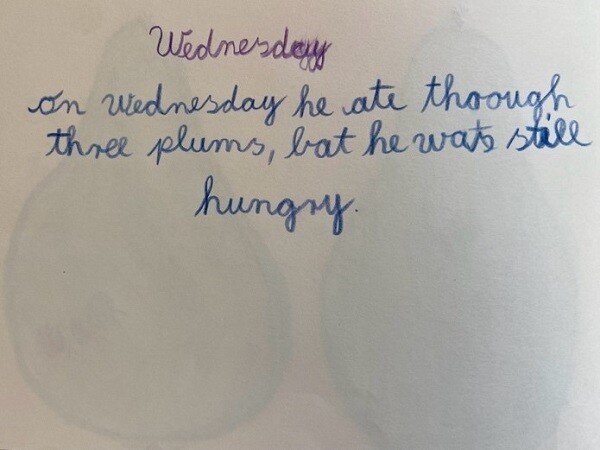 Wednesday
on Wednesday he ate thoough
three plums, bat he wats still
hungry.